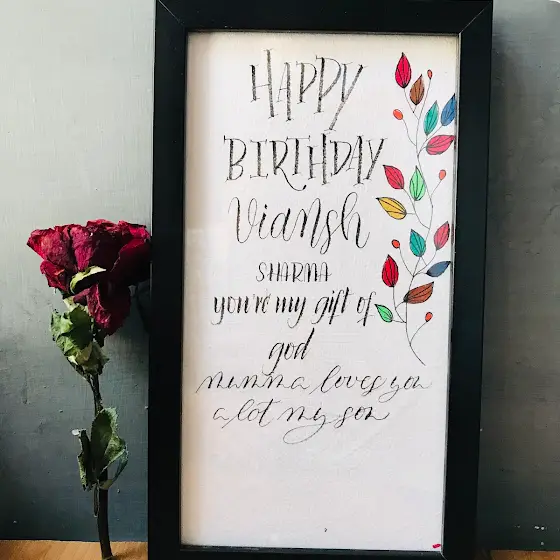 HAPPY
BIRTHDAY
Viansh
SHARMA
you're my gift of
god
mumma loves you
a lot my son